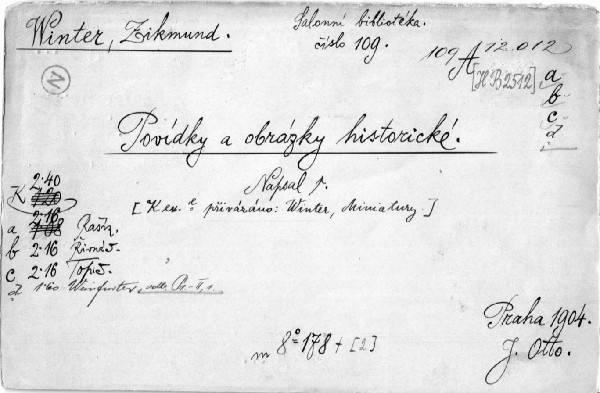 Winter, Zikmund.
Salonní bibliotéka.
číslo 109.
109 A 12.012
[HB2512]
a
b
c
d
N
Povídky a obrázky historické.
Napsal
[K ex. přivázáno: Winter, Miniatury.]
K 2·40
a 2·16
b 2·16 Řivnáč.
c 2·16 Topič.
d 1·60
8° 178 + [2]
Praha 1904.
J. Otto.